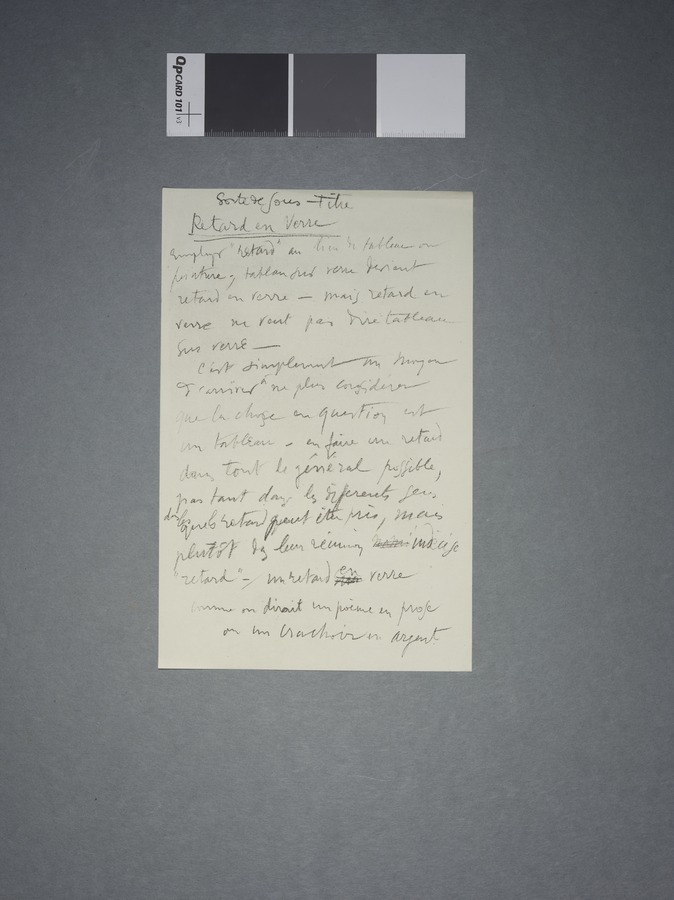 QPCARD 101 v3
Sorte de Sous-Titre
Retard en Verre
Employer "retard" au lieu de tableau ou
peinture; tableau sur verre devient
retard en verre — mais retard en
verre ne veut pas dire tableau
sur verre —
C'est simplement un moyen
d'arriver à ne plus considérer
que la chose en question est
un tableau - en faire un retard
dans tout le général possible,
pas tant dans les différents sens
dans lesquels retard peut être pris, mais
plutôt dans leur réunion indécise
"retard" -/ un retard en verre
comme on dirait un poème en prose
ou un crachoir en argent